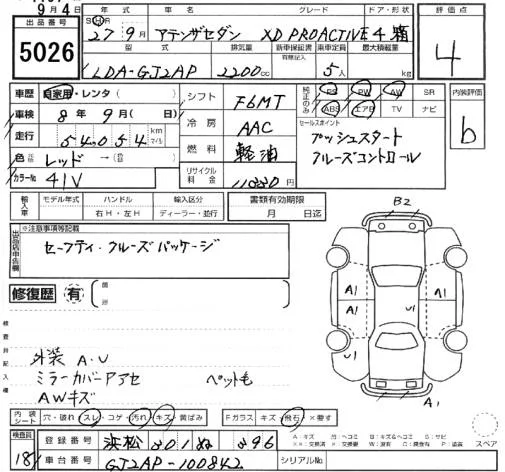 9月4日
出品番号
5026
年式 車名 グレード ドア・形状
S・H・R 27年9月 アテンザセダン XD PROACTIVE 4 箱
型式 排気量 新車保証書 乗車定員 最大積載量
有際記入
LDA-GJ2AP 2200cc 5人 kg
評価点
4
車歴 自家用・レンタ( )
車検 8年9月( 日)
走行 54,054 km マイル
色 レッド → (色替)
カラーNo 41V
シフト F6MT
冷房 AAC
燃料 軽油
リサイクル料金 11030円
純正のみ
PS PW AW SR
ABS エアB TV ナビ
セールスポイント
プッシュスタート
クルーズコントロール
内装評価
b
輸入車 モデル年式 ハンドル 輸入区分
年 右H・左H ディーラー・並行
書類有効期限
月 日迄
出品店申告欄
※注意事項等記載
セーフティ・クルーズパッケージ
修復歴 有
検査員記入欄
外装 A・U
ミラーカバーPアセ ペット毛
AWキズ
B2
A1 A1
A1 U1
A1
内装シート 穴・破れ・スレ・コゲ・汚れ・キズ・黄ばみ Fガラス キズ・飛石・×要す
A:キズ
スペア
検査員
18
登録番号 浜松 301 ぬ 396
車台番号 GJ2AP-100842 シリアルNo